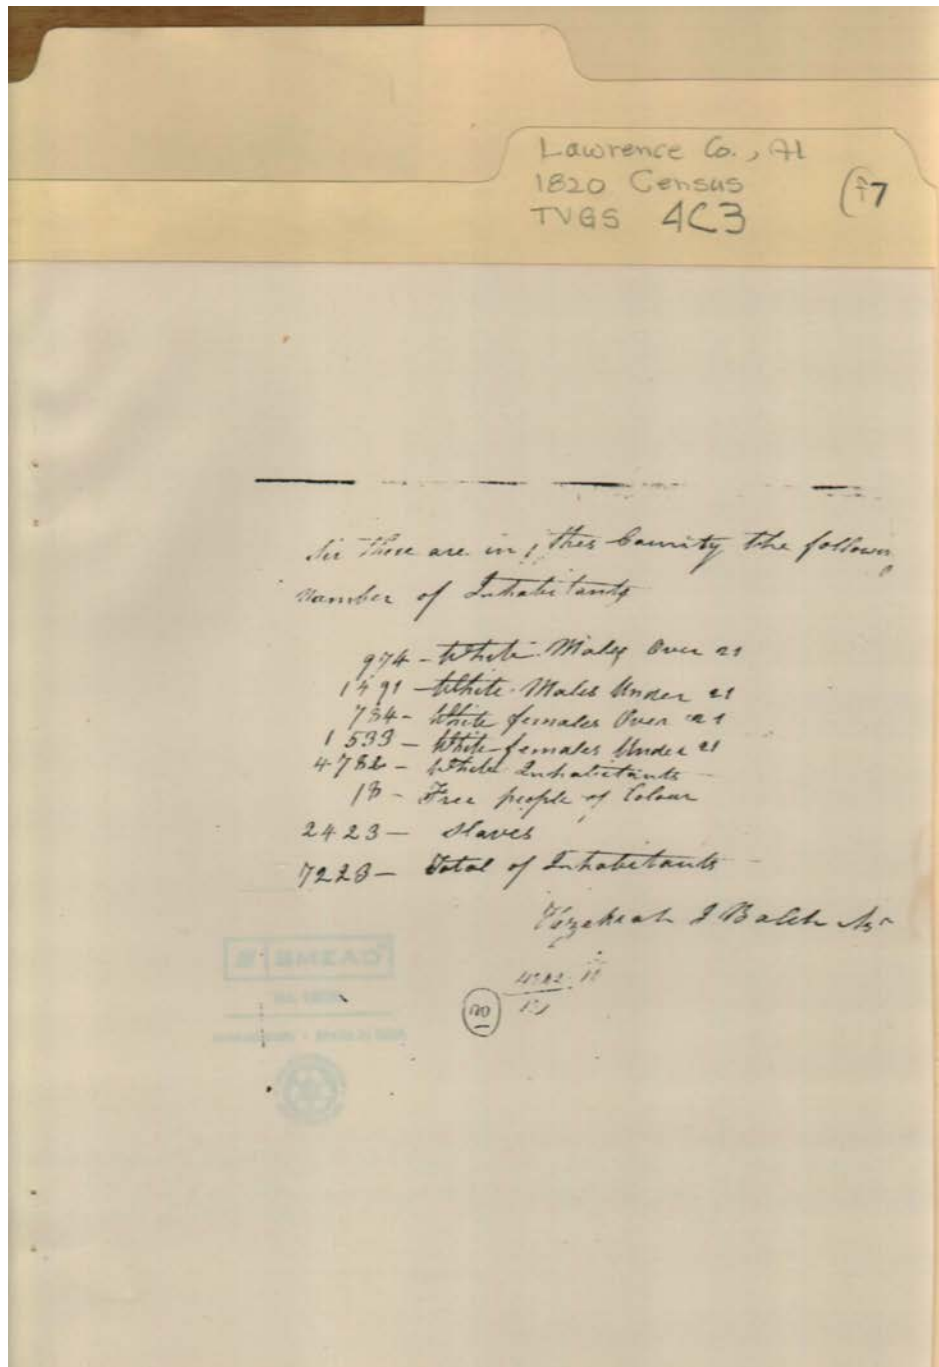 Lawrence Co., Al
1820 Census
TVGS 4C3
Sir There are in this County the followin
Number of Inhabitants
974 - White Males Over 21
1491 - White Males Under 21
784 - White females Over 21
1533 - White females Under 21
4782 - White Inhabitants
18 - Free people of Colour
2423 - Slaves
7223 - Total of Inhabitants
Hezekiah J Balch